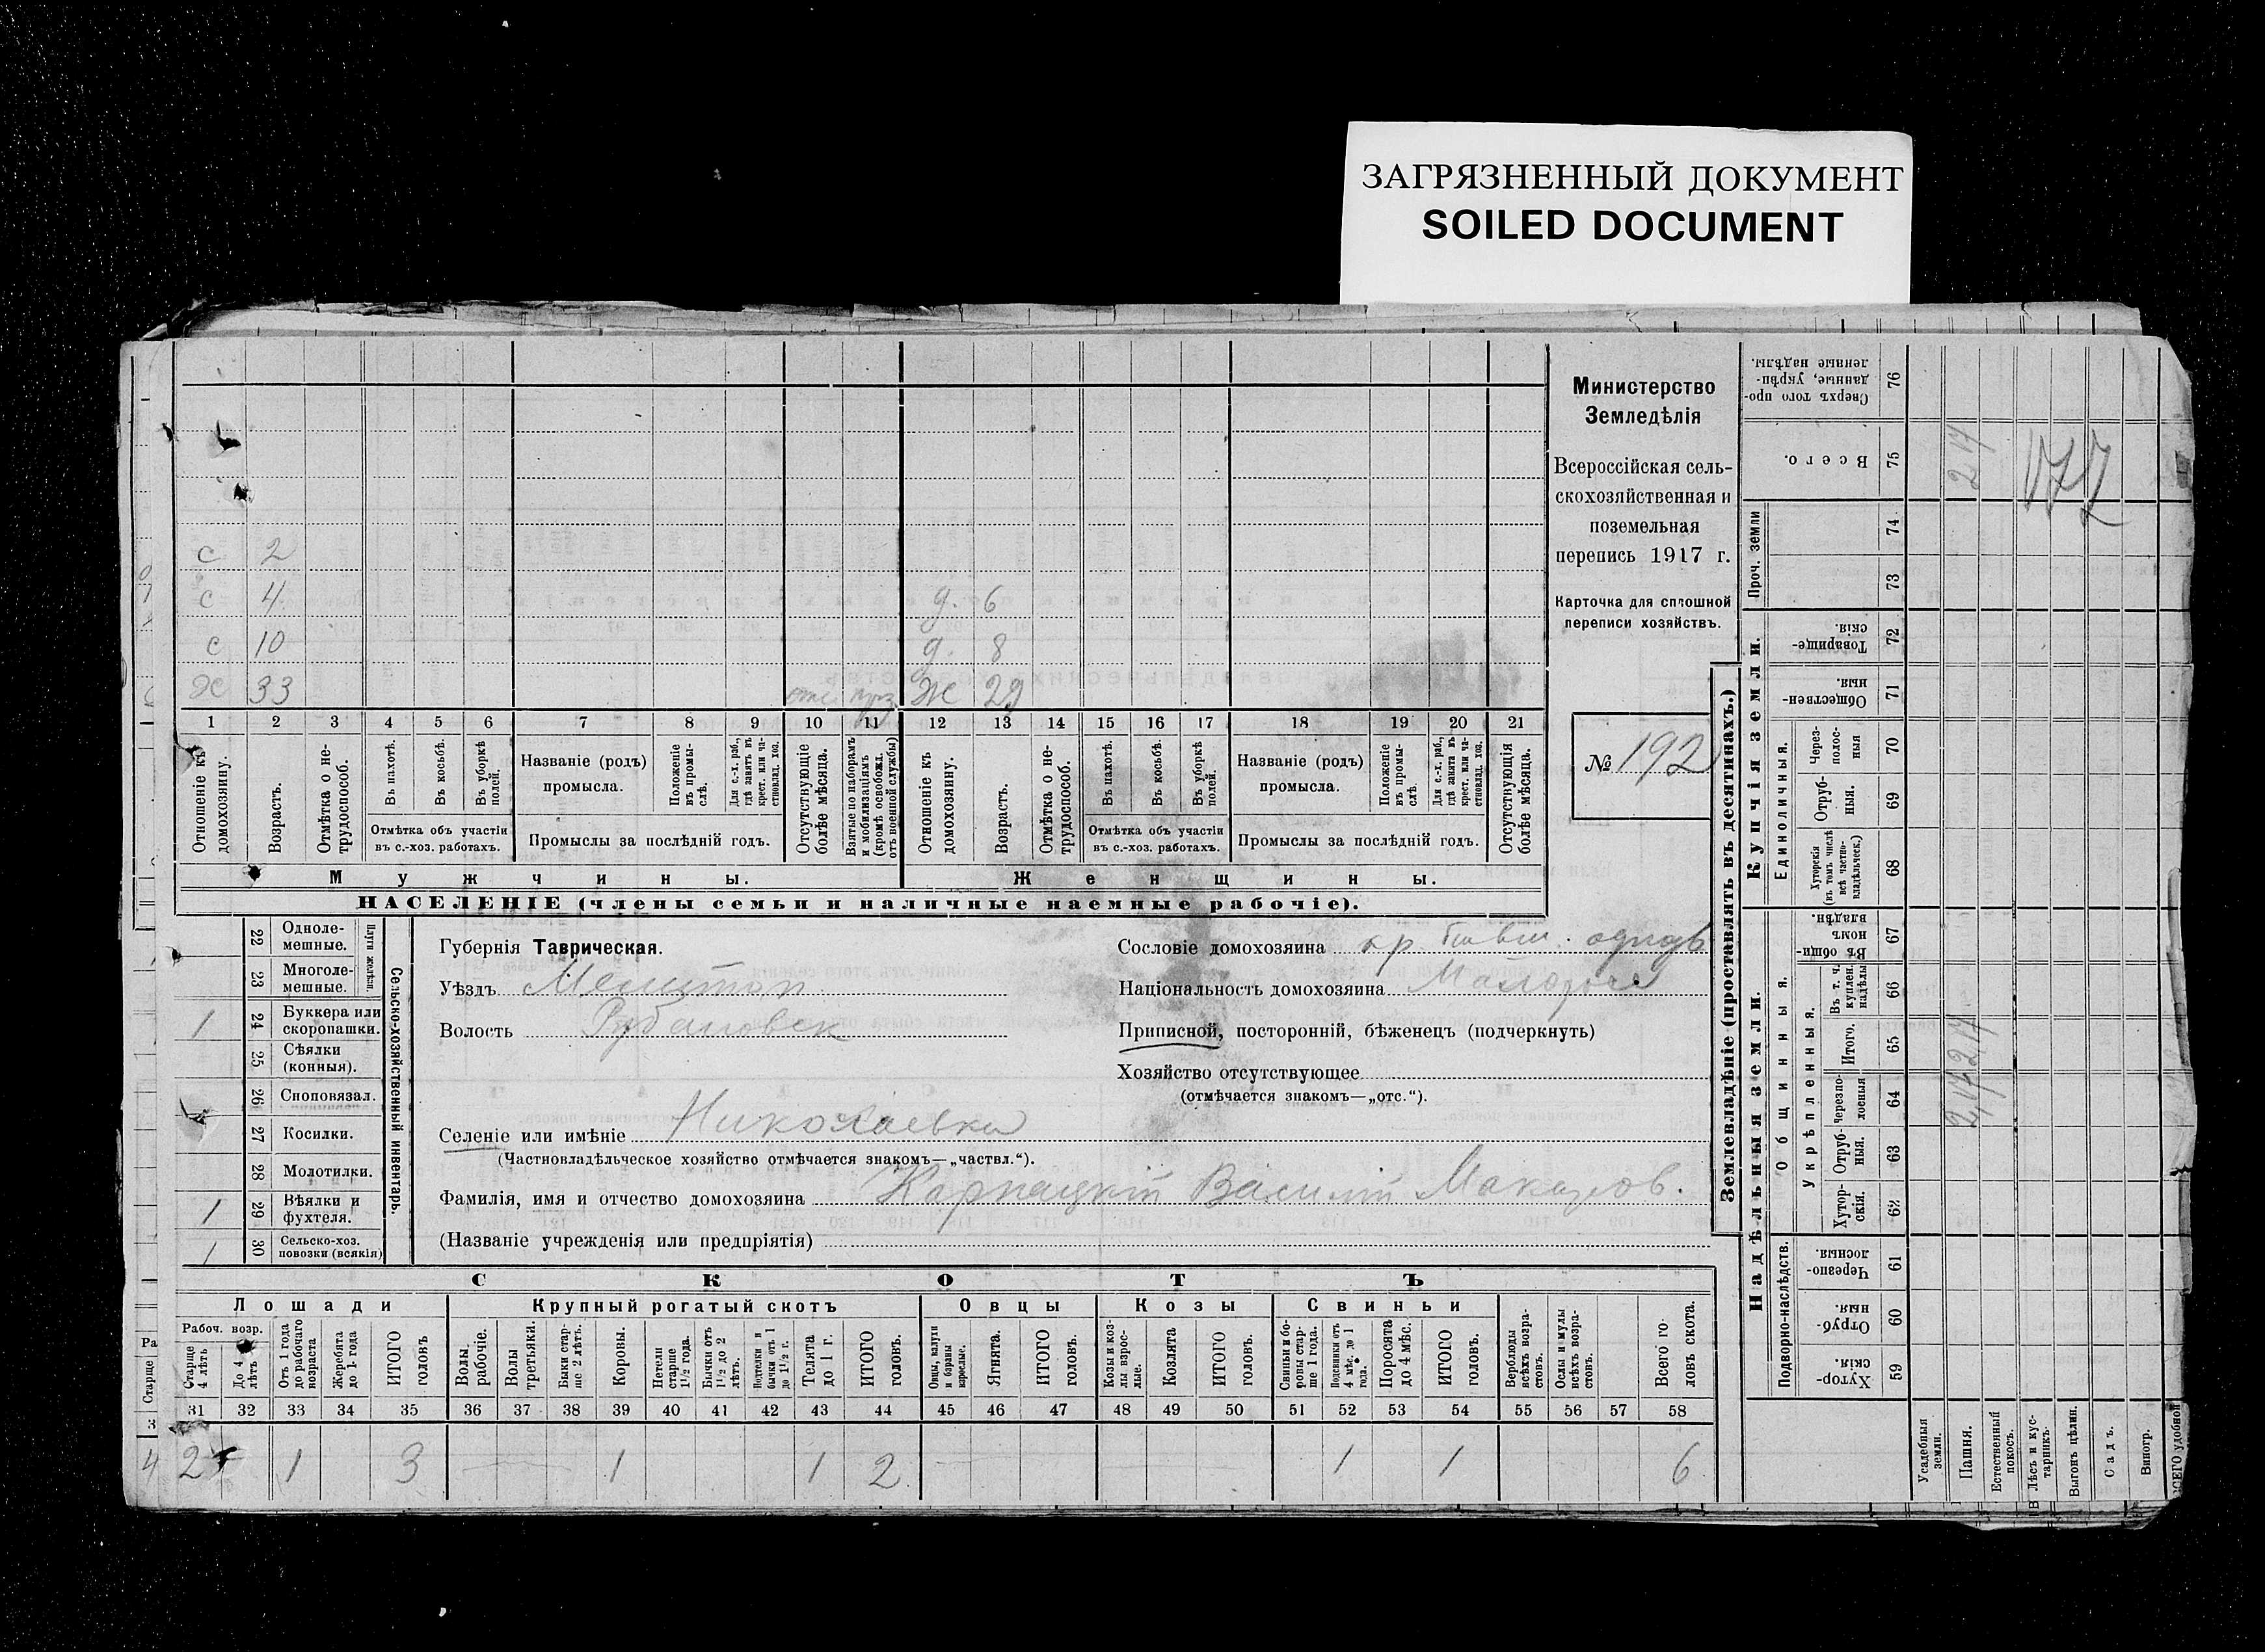 ЗАГРЯЗНЕННЫЙ ДОКУМЕНТ
SOILED DOCUMENT
Министерство
Земледѣлія
Всероссійская сель-
скохозяйственная и
поземельная
перепись 1917 г.
Карточка для сплошной
переписи хозяйствъ.
№ 192
с 2
с 4 д. 6
с 10 д. 8
Ж 33 Ж 29
1 2 3 4 5 6 7 8 9 10 11 12 13 14 15 16 17 18 19 20 21
Отношеніе къ домохозяину.
Возрастъ.
Отмѣтка о не-трудоспособ.
Въ пахотѣ.
Въ косьбѣ.
Въ уборкѣ полей.
Отмѣтка объ участіи
въ с.-хоз. работахъ.
Названіе (родъ)
промысла.
Положеніе въ промы-слѣ.
Для с.-х. раб., гдѣ занятъ въ крест. или ча-стновлад. хоз.
Промыслы за послѣдній годъ.
Отсутствующіе болѣе мѣсяца.
Взятые по наборамъ и мобилизаціямъ (кромѣ освобожд. отъ военной службы)
Отношеніе къ домохозяину.
Возрастъ.
Отмѣтка о не-трудоспособ.
Въ пахотѣ.
Въ косьбѣ.
Въ уборкѣ полей.
Отмѣтка объ участіи
въ с.-хоз. работахъ.
Названіе (родъ)
промысла.
Положеніе въ промы-слѣ.
Для с.-х. раб., гдѣ занята въ крест. или ча-стновлад. хоз.
Промыслы за послѣдній годъ.
Отсутствующія болѣе мѣсяца.
Мужчины. Женщины.
НАСЕЛЕНІЕ (члены семьи и наличные наемные рабочіе).
22 Одноле-мешные.
23 Многоле-мешные.
Плуги желѣзн.
1 24 Буккера или скоропашки.
25 Сѣялки (конныя).
26 Сноповязал.
27 Косилки.
28 Молотилки.
1 29 Вѣялки и фухтеля.
1 30 Сельско-хоз. повозки (всякія)
Сельско-хозяйственный инвентарь.
Губернія Таврическая.
Уѣздъ Мелитоп
Волость Рубановск
Селеніе или имѣніе Николаевка
(Частновладѣльческое хозяйство отмѣчается знакомъ—„частвл.“).
Фамилія, имя и отчество домохозяина Карпацкій Василій Макаров.
(Названіе учрежденія или предпріятія)
Сословіе домохозяина кр.
Національность домохозяина Малорос
Приписной, посторонній, бѣженецъ (подчеркнуть)
Хозяйство отсутствующее
(отмѣчается знакомъ—„отс.“).
СКОТЪ
Лошади Крупный рогатый скотъ Овцы Козы Свиньи
Рабоч. возр.
Старше 4 лѣтъ
До 4 лѣтъ
Отъ 1 года до рабочаго возраста
Жеребята до 1 года
ИТОГО головъ
Волы рабочіе.
Волы третьяки.
Быки стар-ше 2 лѣтъ.
Коровы.
Нетели старше 1½ года.
Бычки отъ 1½ до 2 лѣтъ.
Подтелки и бычки отъ 1 до 1½ г.
Телята до 1 г.
ИТОГО головъ.
Овцы, валухи и бараны взрослые.
Ягнята.
ИТОГО головъ.
Козы и коз-лы взрос-лые.
Козлята
ИТОГО головъ.
Свиньи и бо-ровы стар-ше 1 года.
Подсвинки отъ 4 мѣс. до 1 года.
Поросята до 4 мѣс.
ИТОГО головъ.
Верблюды всѣхъ возра-стовъ.
Ослы и мулы всѣхъ возра-стовъ.
Всего го-ловъ скота.
31 32 33 34 35 36 37 38 39 40 41 42 43 44 45 46 47 48 49 50 51 52 53 54 55 56 57 58
2 1 3 1 1 2 1 1 6
Землевладѣніе (проставлять въ десятинахъ.)
Купчія земли.
Надѣльныя земли.
Сверхъ того про-данные, укрѣп-ленные надѣлы. 76
Всего. 75
Проч. земли 74
73
Товарище-скія. 72
Обществен-ныя. 71
Единоличныя.
Через-полос-ныя 70
Отруб-ныя. 69
Хуторскія (въ томъ числѣ всѣ частно-владѣльческ.) 68
Въ общин-номъ владѣн. 67
Общинныя.
Укрѣпленныя.
Въ т. ч. куплен. надѣлы 66
Итого. 65
Черезпо-лосныя 64
Отруб-ныя. 63
Хутор-скія. 62
Подворно-наслѣдств.
Черезпо-лосныя 61
Отруб-ныя. 60
Хутор-скія. 59
Усадебныя земли.
Пашня.
Естественный покосъ.
Лѣсъ и кус-тарникъ.
Выгонъ цѣлин.
Садъ.
Виногр.